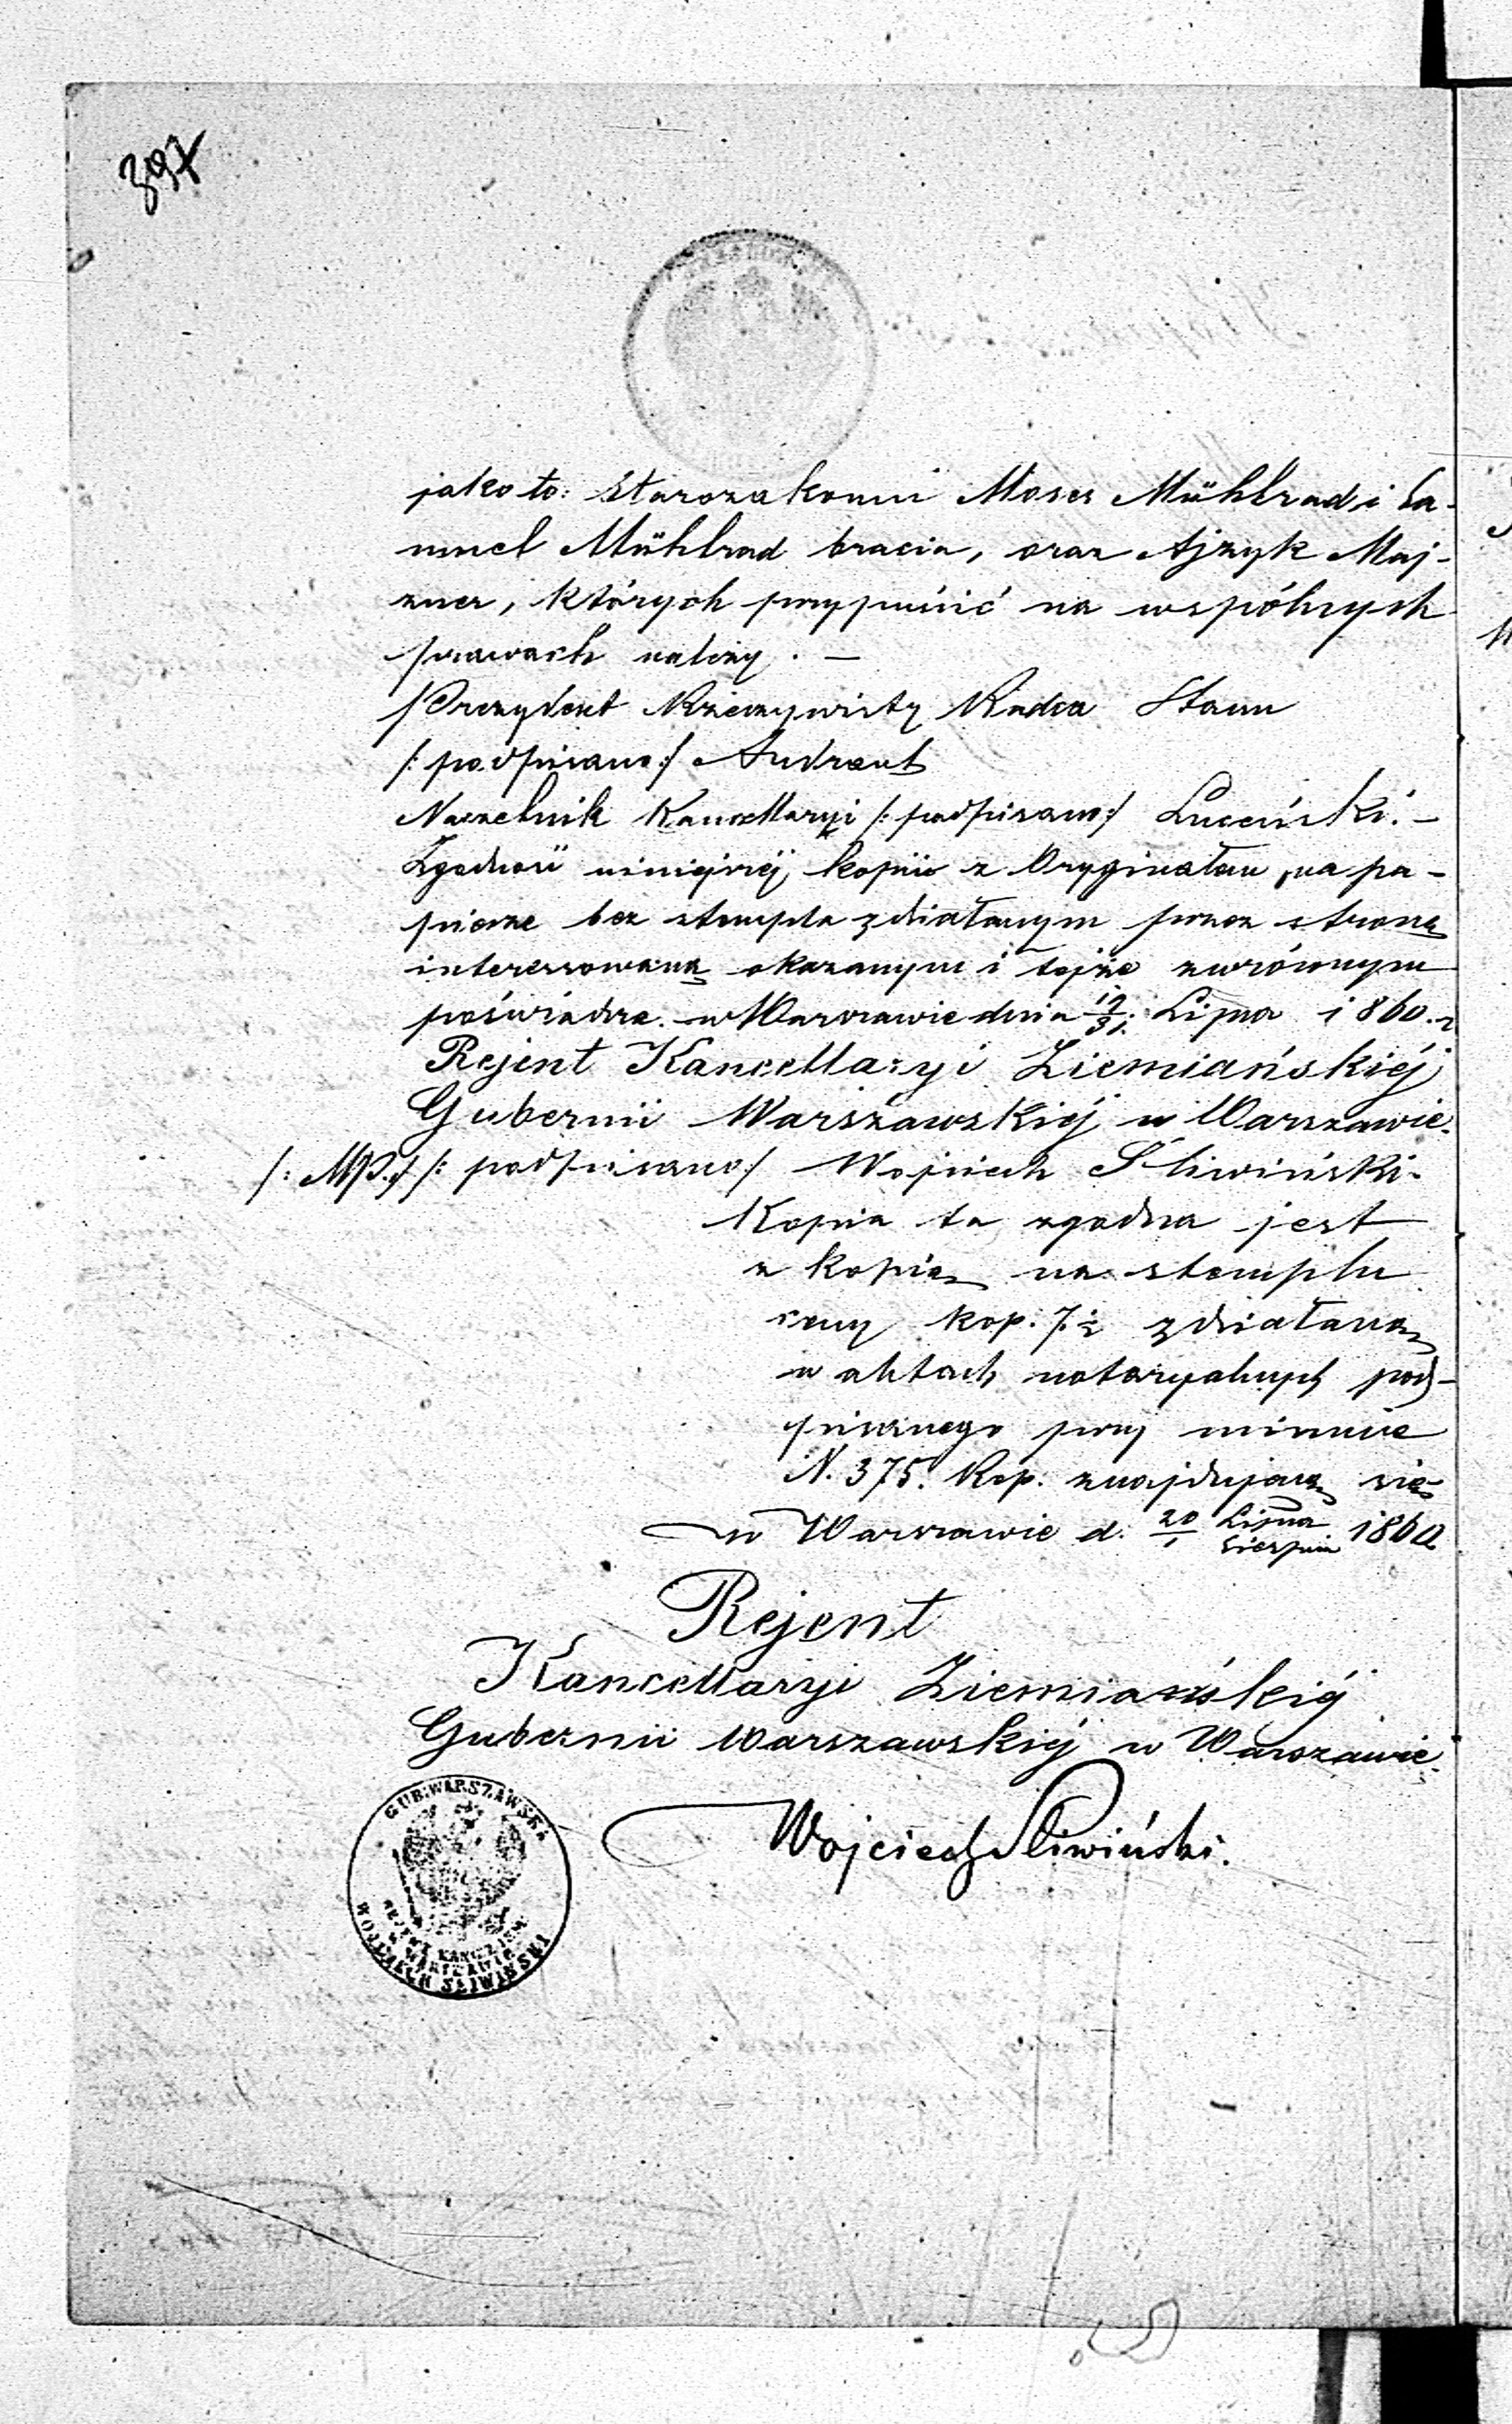 397
jako to: Starozakonni Moses Mühlrad i Sa-
muel Mühlrad bracia, oraz Ajzyk Maj-
zner, których przypuścić na wspólnych
prawach należy. —
Prezydent Rzeczywisty Radca Stanu
/: podpisano :/ Andrault
Naczelnik Kancellaryi /: podpisano :/ Luceński. —
Zgodność niniejszéj kopii z Oryginałem na pa-
pierze bez stempla zdziałanym przez stronę
interessowaną okazanym i tejże zwróconym
poświadcza. w Warszawie dnia 19/31. Lipca 1860. r.
Rejent Kancellaryi Ziemiańskiéj
Gubernii Warszawskiéj w Warszawie.
/: MP. :/ /: podpisano :/ Wojciech Śliwiński.
Kopia ta zgodna jest
z kopią na stemplu
ceny kop. 7½ zdziałaną
w aktach notaryalnych pod-
pisanego przy minucie
N. 375. Rep. znajdującą się
w Warszawie d. 20/1 Lipca/Sierpnia 1860
Rejent
Kancellaryi Ziemiańskiéj
Gubernii Warszawskiéj w Warszawie.
Wojciech Śliwiński.
GUB: WARSZAWSKA
REJENT KANC: ZIEM:
W WARSZAWIE
WOJCIECH ŚLIWIŃSKI